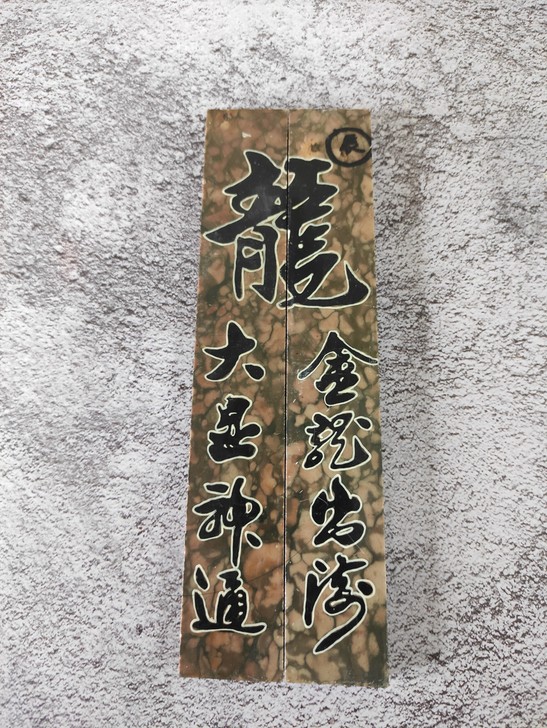 辰
龍
金龍出海
大显神通